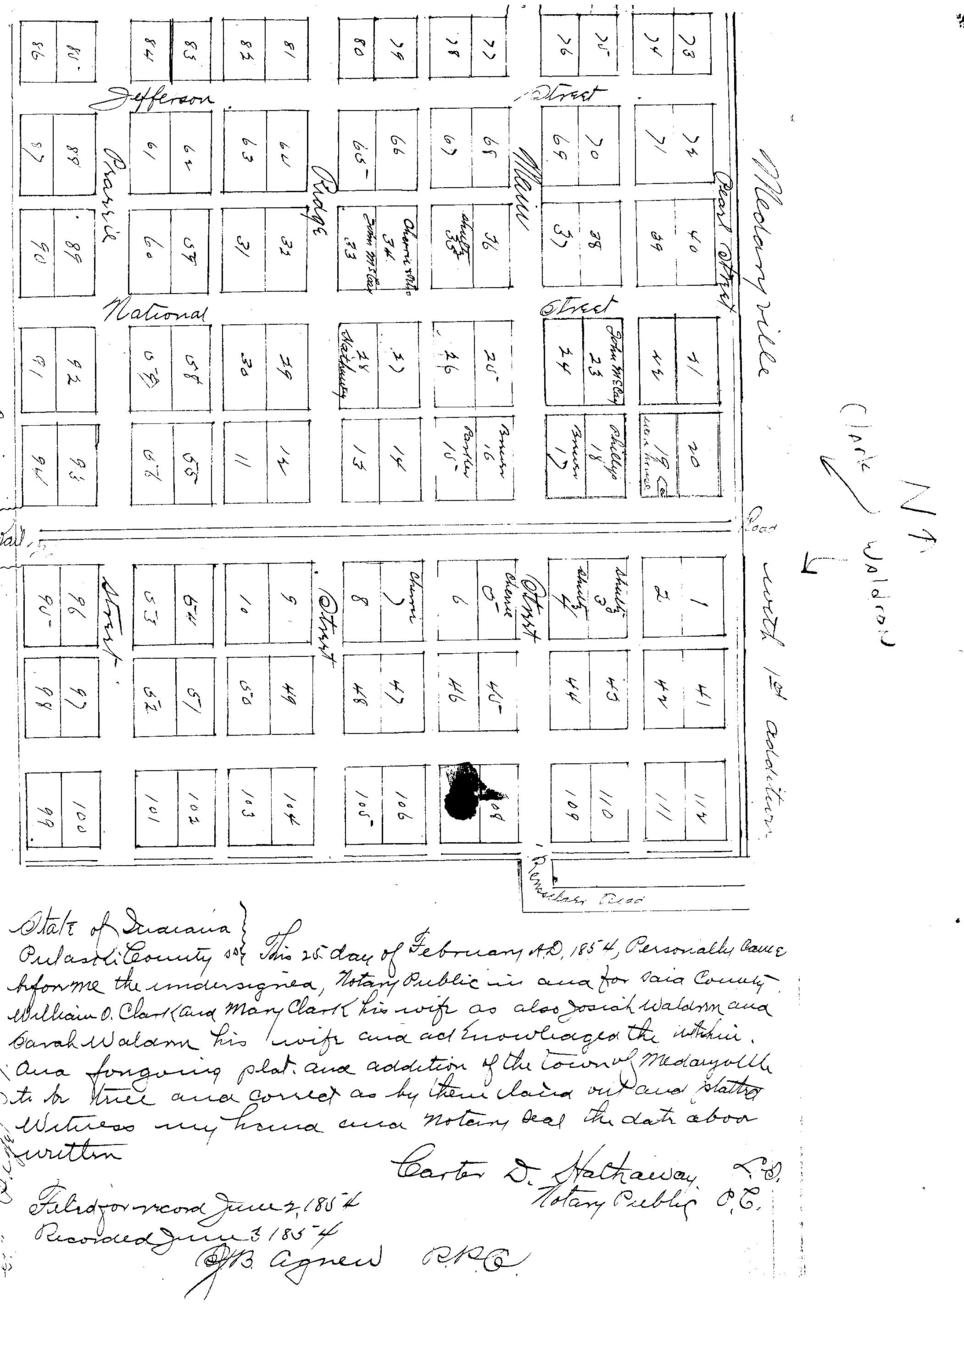 86 85 84 83 82 81 80 79 78 77 76 75 74 73
Jefferson Street
87 88 61 62 63 64 65 66 67 68 69 70 71 72
Prairie Ridge Main Pearl Street
90 89 60 59 31 32 33 34 35 36 37 38 39 40
John McCay
Shultz
National Street
91 92 57 58 30 29 28 27 26 25 24 23 22 21
Hathaway John McCay
94 93 56 55 11 12 13 14 15 16 17 18 19 20
Brown Brown Phillips
Road
95 96 53 54 10 9 8 7 6 5 4 3 2 1
Cherrie Shultz Shultz
Street Street Street
98 97 52 51 50 49 48 47 46 45 44 43 42 41
99 100 101 102 103 104 105 106 108 109 110 111 112
Rensselaer Road
Medaryville with 1st addition
Clark Waldron
N
State of Indiana }
Pulaski County ss } This 25 day of February A.D. 1854, Personally Came
before me the undersigned, Notary Public in and for said County
William O. Clark and Mary Clark his wife as also Josiah Waldron and
Sarah Waldron his wife and acknowledged the within
And foregoing plat and addition of the town of Medaryville
to be true and correct as by them laid out and platted
Witness my hand and Notary Seal the date above
written
Carter D. Hathaway L.S.
Notary Public P.C.
Filed for record June 2, 1854
Recorded June 3 1854
J B Agnew R.P.C.